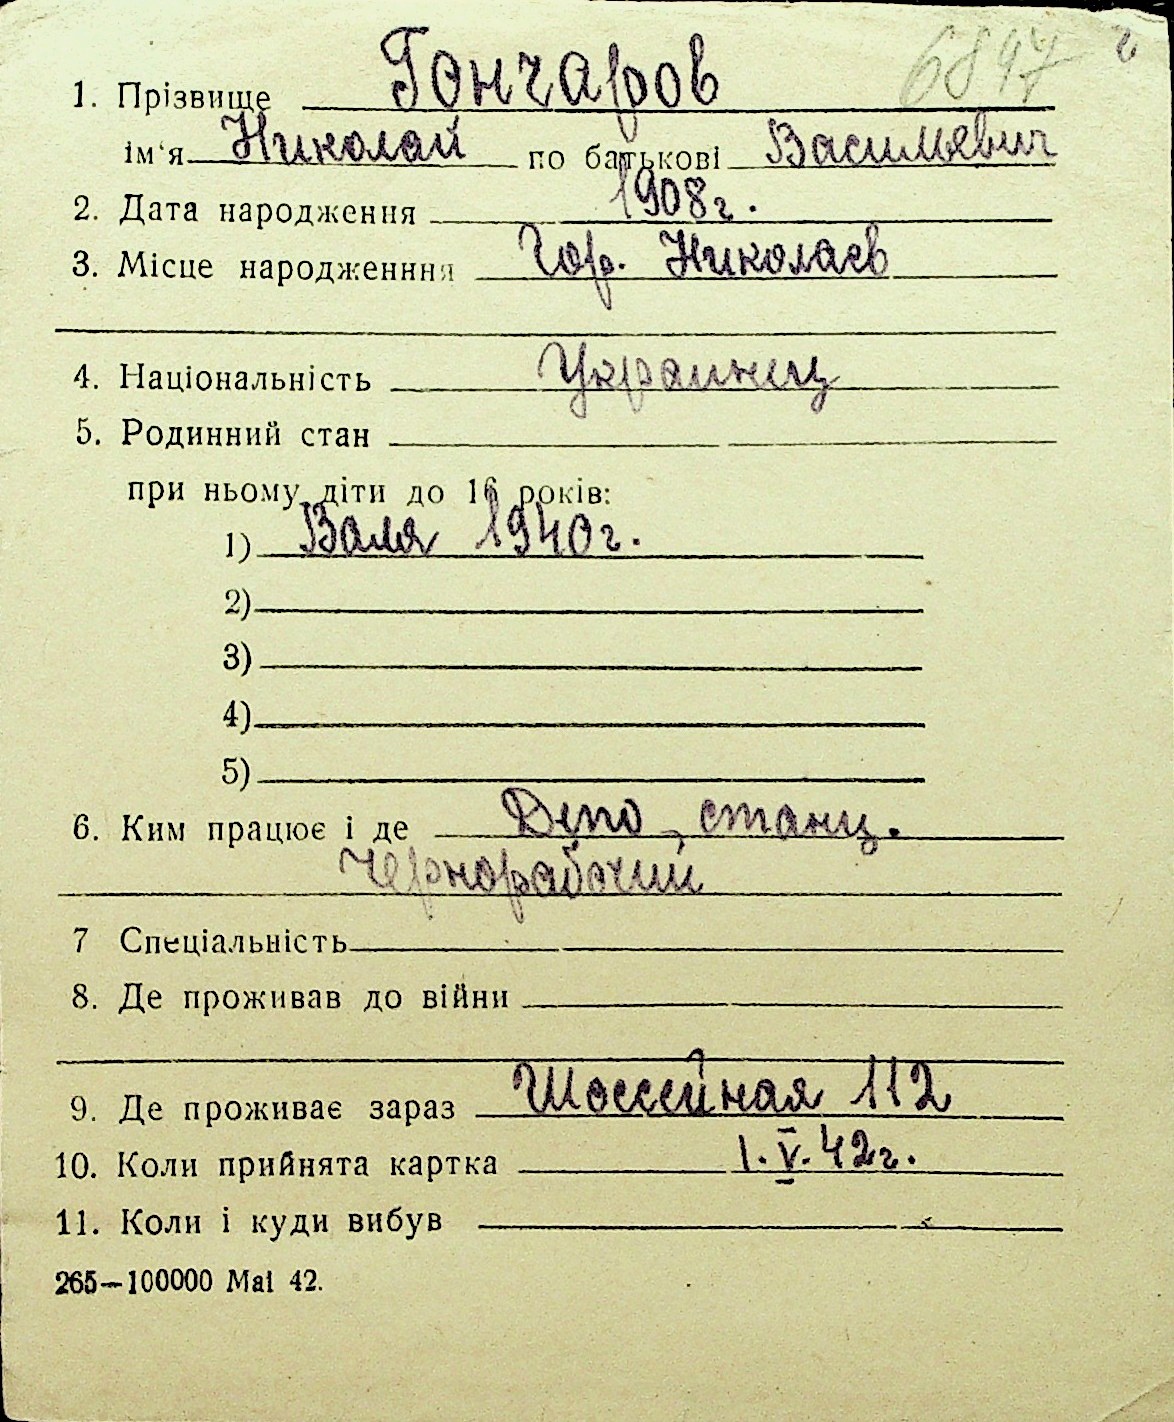 6897 г
1. Прізвище Гончаров
ім'я Николай по батькові Васильевич
2. Дата народження 1908г.
3. Місце народженння Гор. Николаев
4. Національність Украинец
5. Родинний стан
при ньому діти до 16 років:
1) Валя 1940г.
2)
3)
4)
5)
6. Ким працює і де Депо станц.
Чернорабочий
7 Спеціальність
8. Де проживав до війни
9. Де проживає зараз Шоссейная 112
10. Коли прийнята картка 1.V.42г.
11. Коли і куди вибув
265—100000 Mai 42.